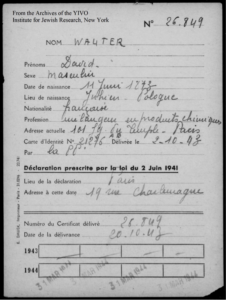 From the Archives of the YIVO
Institute for Jewish Research, New York
N° 26.849
NOM WALTER
Prénoms David
Sexe masculin
Date de naissance 11 Juin 1892
Lieu de naissance Pologne
Nationalité
Profession en produits chimiques
Adresse actuelle 101 Paris
Carte d'Identité N° 21276 Délivrée le 2-10-43
Par la PP
Déclaration prescrite par la loi du 2 Juin 1941
Lieu de la déclaration Paris
Adresse à cette date 19 rue Charlemagne
Numéro du Certificat délivré 26.849
Date de la délivrance 20.10.43
1943
1944 31 MAR 1944